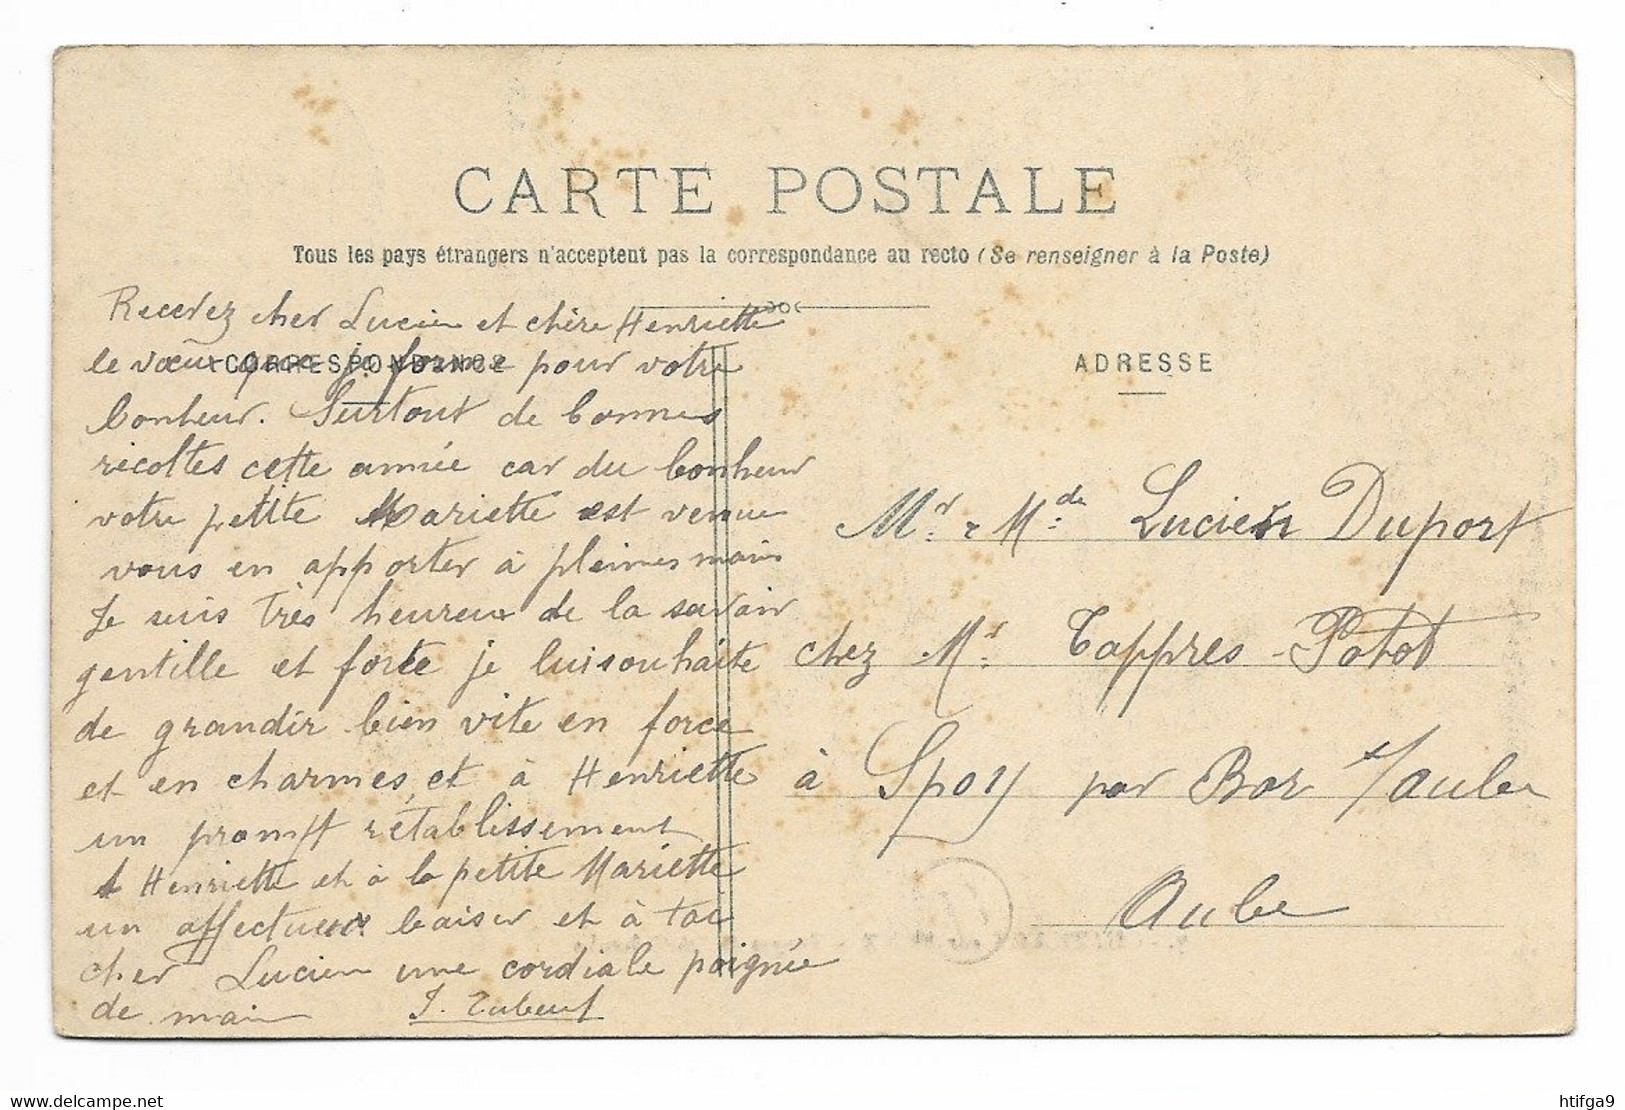 CARTE POSTALE
Tous les pays étrangers n'acceptent pas la correspondance au recto (Se renseigner à la Poste)
CORRESPONDANCE
Recevez cher Lucien et chère Henriette
le vœux que je forme pour votre
bonheur. Surtout de bonnes
récoltes cette année car du bonheur
votre petite Mariette est venue
vous en apporter à pleines mains
Je suis très heureux de la savoir
gentille et forte je lui souhaite
de grandir bien vite en force
et en charmes, et à Henriette
un prompt rétablissement
A Henriette et à la petite Mariette
un affectueux baiser et à toi
cher Lucien une cordiale poignée
de main
ADRESSE
Mr. & Mde Lucien Duport
chez Mr. Tappres-Potot
à Spoy par Bar s/aube
Aube
htifga9